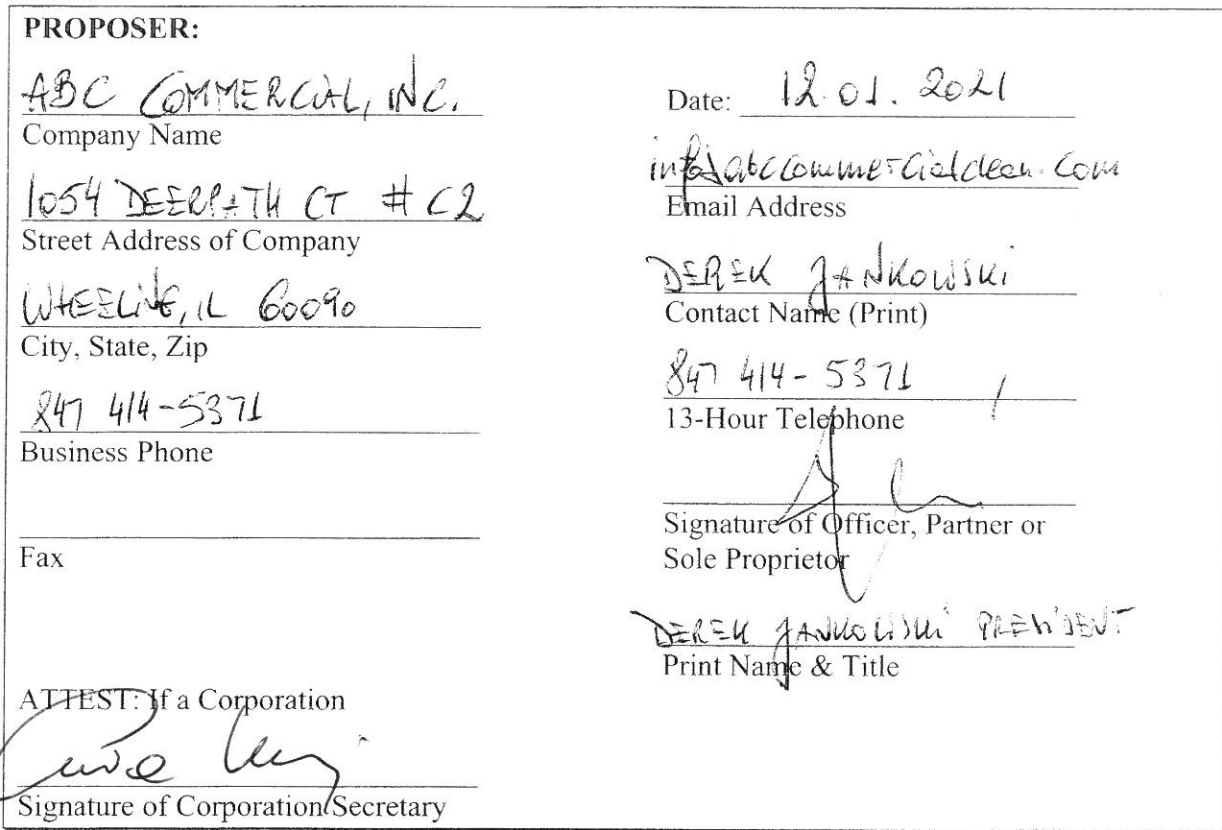 PROPOSER:
ABC COMMERCIAL, INC.
Company Name
1054 DEERPATH CT # C2
Street Address of Company
WHEELING, IL 60090
City, State, Zip
847 414-5371
Business Phone
Fax
ATTEST: If a Corporation
Signature of Corporation Secretary
Date: 12.01.2021
info@abccommercialclean.com
Email Address
DEREK JANKOWSKI
Contact Name (Print)
847 414-5371
13-Hour Telephone
Signature of Officer, Partner or
Sole Proprietor
DEREK JANKOWSKI PRESIDENT
Print Name & Title